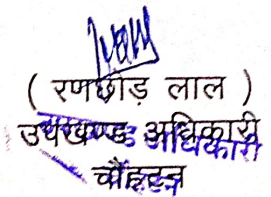 ( रणछोड़ लाल )
उपखण्ड अधिकारी
चौहटन